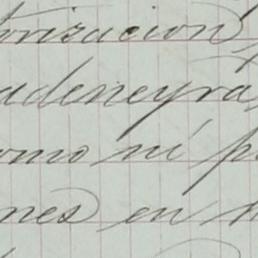 orizacion
adeneyra,
omo ni p
nes en